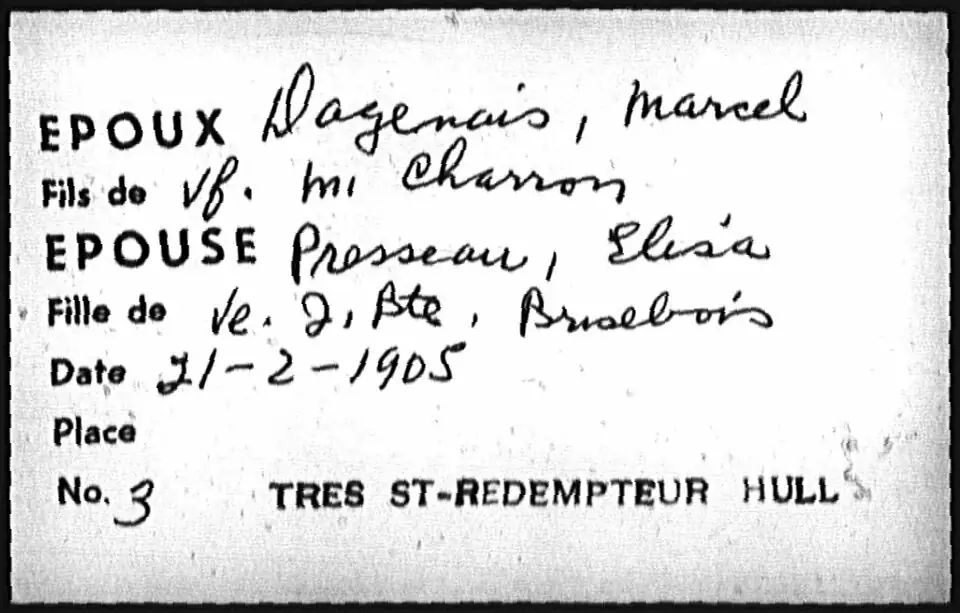 EPOUX Dagenais, Marcel
Fils de Vf. M. Charron
EPOUSE Presseau, Elisa
Fille de Ve. J. Bte, Brisebois
Date 21-2-1905
Place
No. 3 TRES ST-REDEMPTEUR HULL